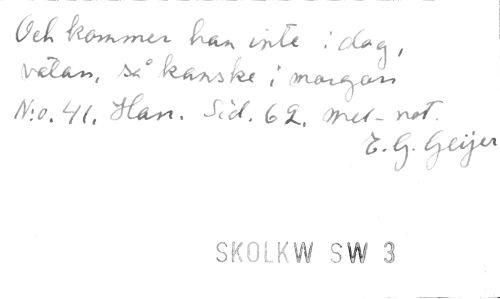 Och kommer han inte i dag,
vätan, så kanske i morgon
N:o. 41. Han. Sid. 62. mel-not.
E. G. Geijer
SKOLKW SW 3